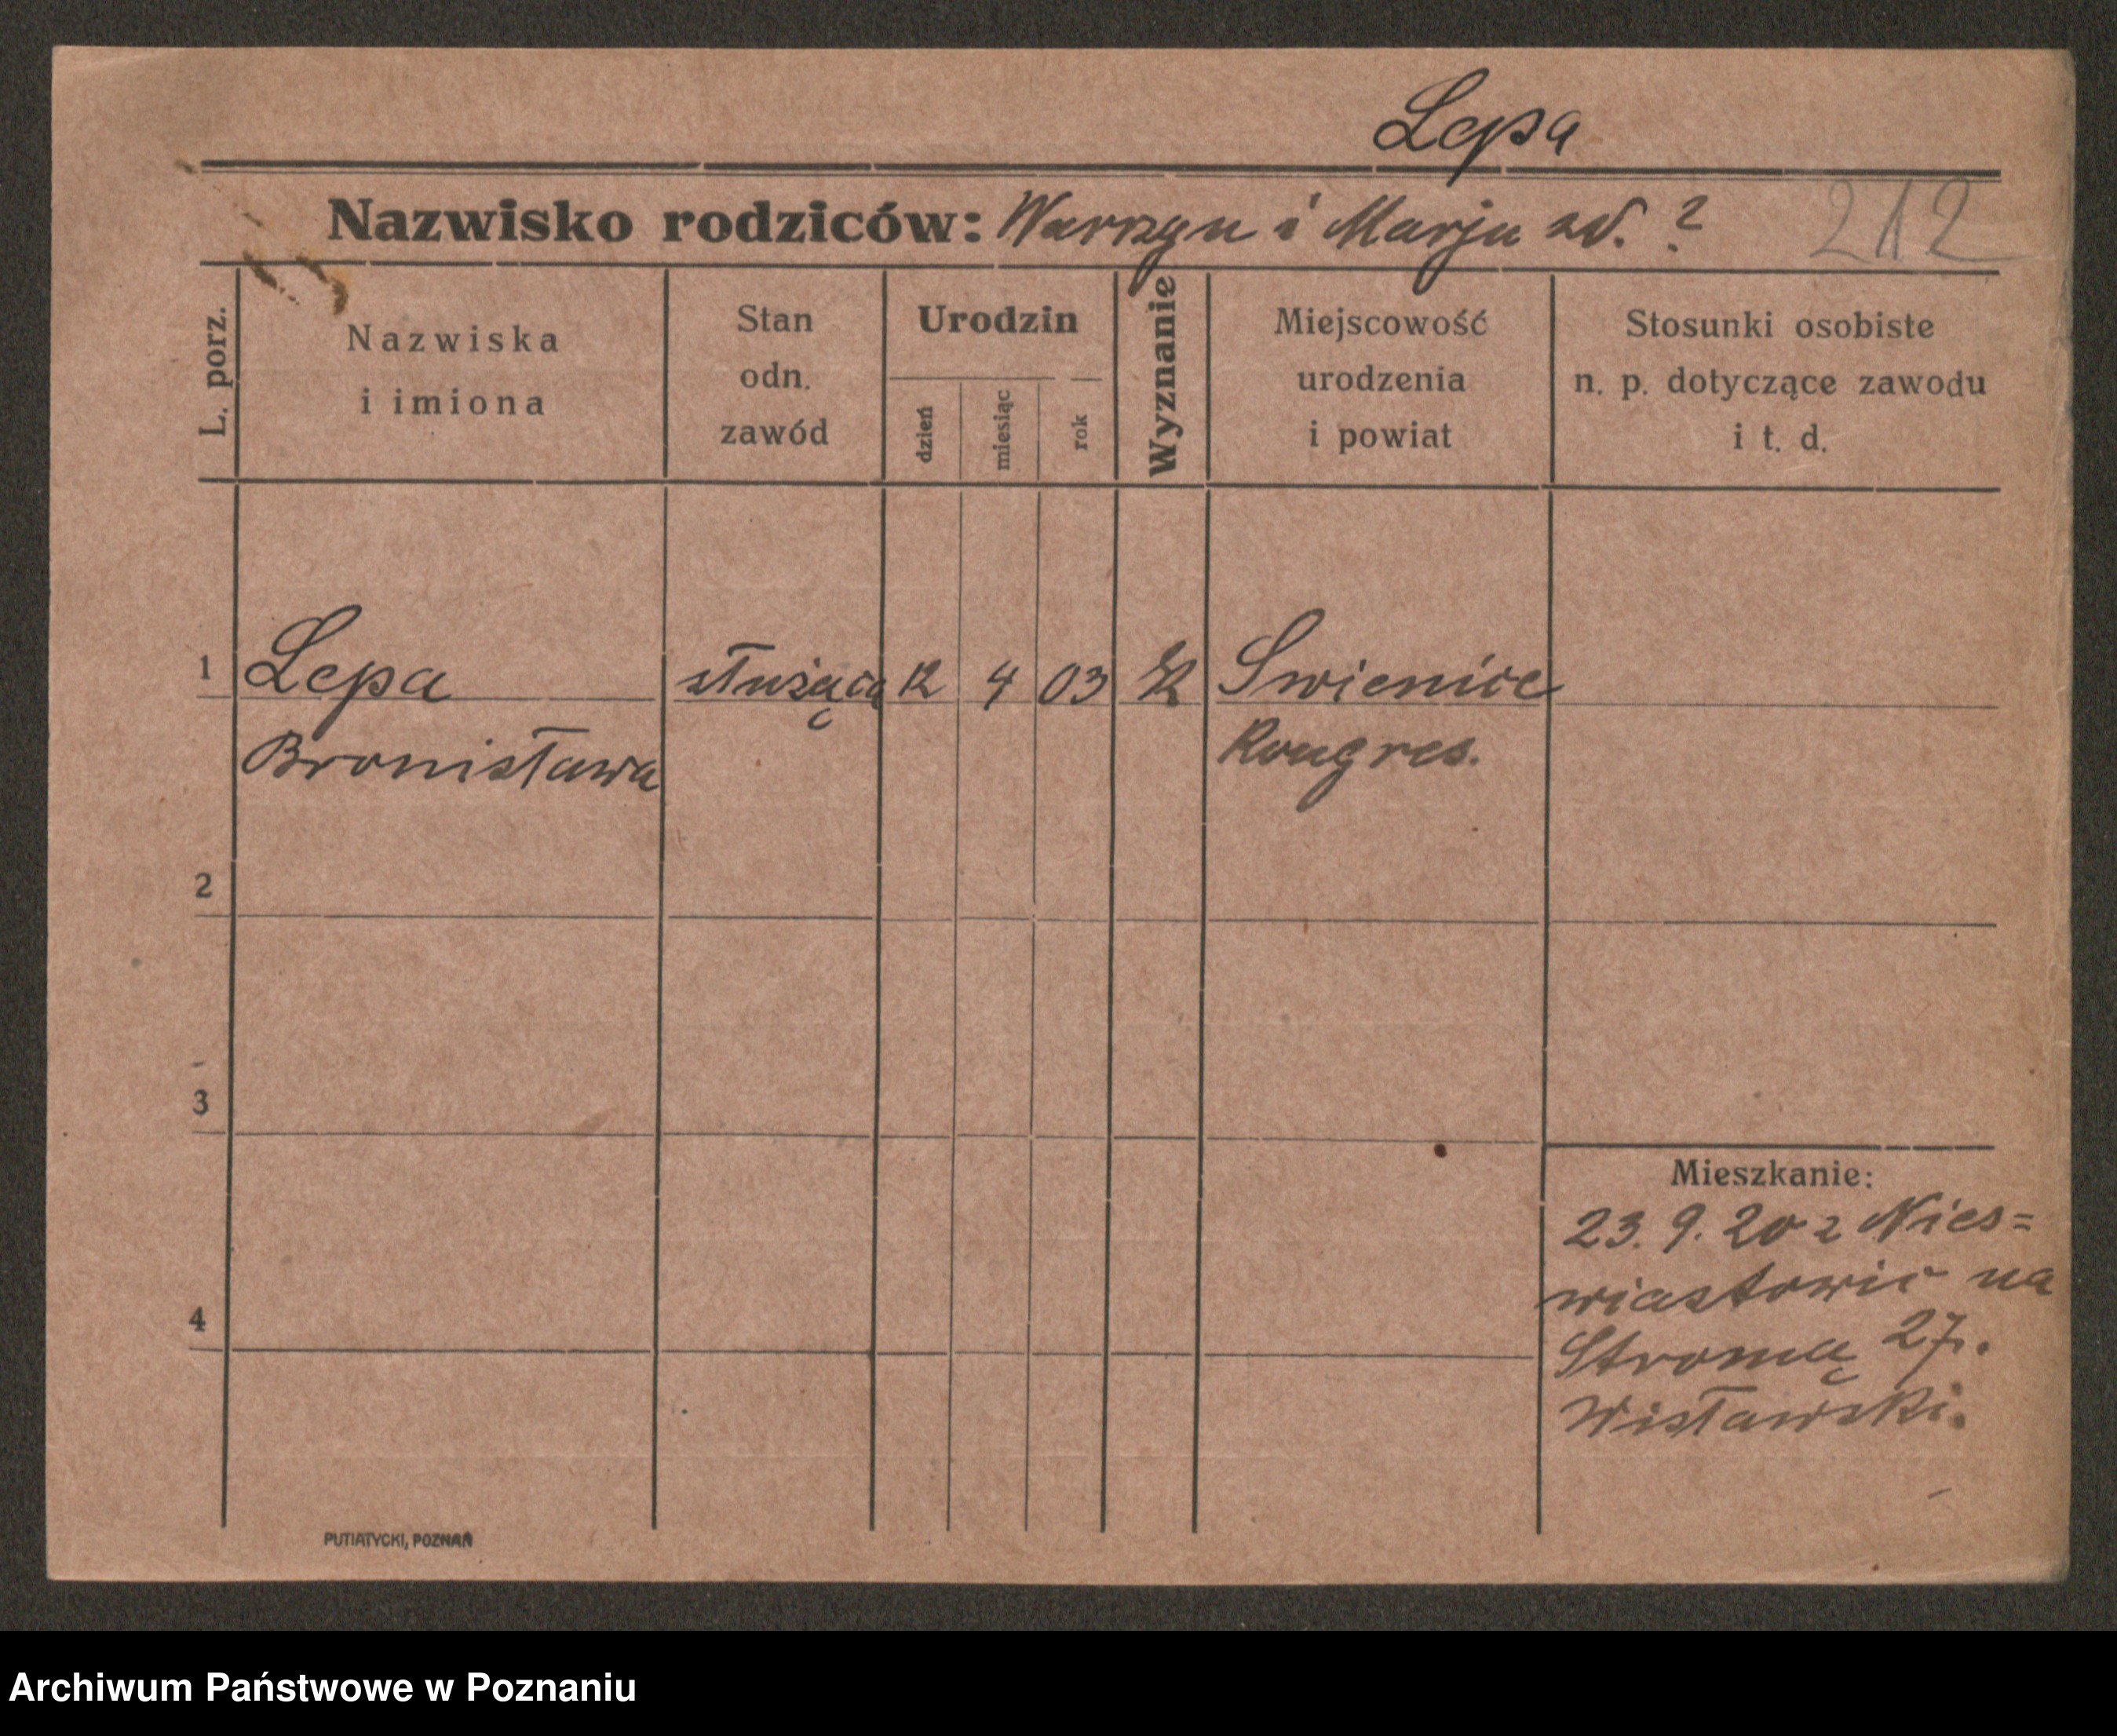 Lepa
Nazwisko rodziców: Warzyn i Marja zd. ?
212
L. porz.
Nazwiska
i imiona
Stan
odn.
zawód
Urodzin
dzień
miesiąc
rok
Wyznanie
Miejscowość
urodzenia
i powiat
Stosunki osobiste
n. p. dotyczące zawodu
i t. d.
1 Lepa służącą 12 4 03 K Swienice
Bronisława Kongres.
2
3
4
Mieszkanie:
23. 9. 20 z Nies=
wiastowic na
Stromą 27.
Wisławski.
PUTIATYCKI, POZNAŃ
Archiwum Państwowe w Poznaniu